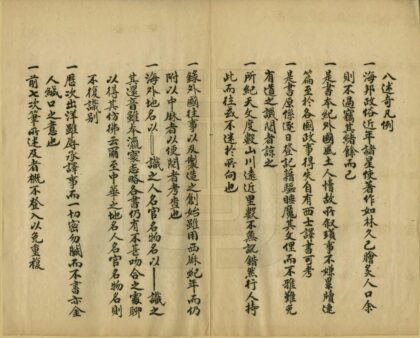 八述奇凡例
一海邦政俗近年諸星使著作如林久已膾炙人口余
則不過竊其緒餘而已
一是書本紀外國風土人情故所敘瑣事不嫌累牘連
篇至於各國政事得失自有西士譯書可考
一是書原係逐日登記藉驅睡魔其文俚而不雅難免
有道之譏閱者諒之
一所紀天文度數山川遠近里數不無訛錯然行人持
此而往或不迷於所向也
一錄外國往事以及製造之創始雖用西厤紀年而仍
附以中厤者以便閱者考覈也
一海外地名以＝識之人名官名物名以—識之
其還音雖奉瀛寰志略各書仍有不甚吻合之處聊
以得其彷彿云爾至中華之地名人名官名物名則
不復識別
一歷次出洋雖廁承譯事而一切密勿闕而不書亦金
人緘口之意也
一前七次筆所述及者概不登入以免重複